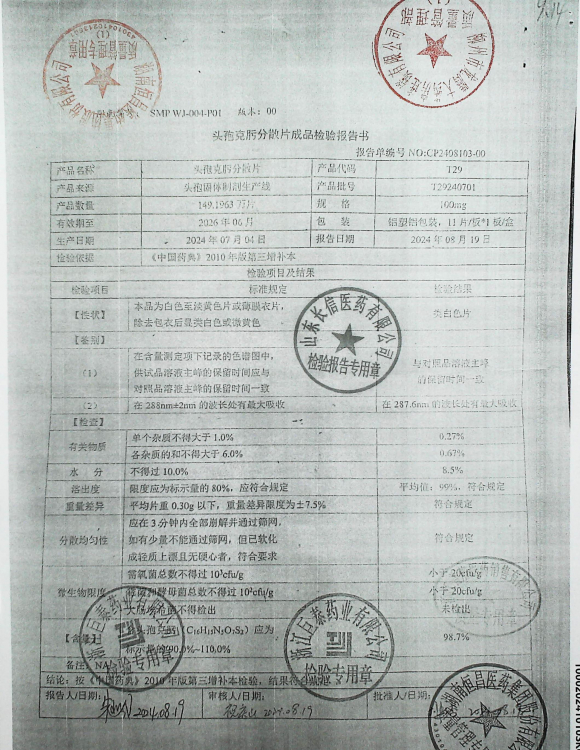 9.14
SMP WJ-004-P01 版本：00
头孢克肟分散片成品检验报告书
报告单编号 NO:CP2408103-00
产品名称 头孢克肟分散片 产品代码 T29
产品来源 头孢固体制剂生产线 产品批号 T29240701
产品数量 149.1963 万片 规格 100mg
有效期至 2026 年 06 月 包装 铝塑铝包装，11 片/板*1 板/盒
生产日期 2024 年 07 月 04 日 报告日期 2024 年 08 月 19 日
检验依据 《中国药典》2010 年版第三增补本
检验项目及结果
检验项目 标准规定 检验结果
【性状】 本品为白色至淡黄色片或薄膜衣片，
除去包衣后显类白色或微黄色 类白色片
【鉴别】
（1） 在含量测定项下记录的色谱图中，
供试品溶液主峰的保留时间应与
对照品溶液主峰的保留时间一致
与对照品溶液主峰
的保留时间一致
（2） 在 288nm±2nm 的波长处有最大吸收 在 287.6nm 的波长处有最大吸收
【检查】
有关物质 单个杂质不得大于 1.0% 0.27%
各杂质的和不得大于 6.0% 0.67%
水分 不得过 10.0% 8.5%
溶出度 限度应为标示量的 80%，应符合规定 平均值：99%，符合规定
重量差异 平均片重 0.30g 以下，重量差异限度为±7.5% 符合规定
分散均匀性 应在 3 分钟内全部崩解并通过筛网，
如有少量不能通过筛网，但已软化
成轻质上漂且无硬心者，符合要求
符合规定
微生物限度 需氧菌总数不得过 10³cfu/g 小于 20cfu/g
霉菌和酵母菌总数不得过 10²cfu/g 小于 20cfu/g
不得检出 未检出
【含量】 应为
标示量的 90.0%~110.0% 98.7%
备注 NA
结论：按《中国药典》2010 年版第三增补本检验，结果符合规定
报告人/日期： 审核人/日期： 批准人/日期：
2024.08.19 2024.08.19
山东长信医药有限公司
检验报告专用章
浙江巨泰药业有限公司
检验专用章
浙江巨泰药业有限公司
检验专用章
质量管理专用章
(1)
质量管理部